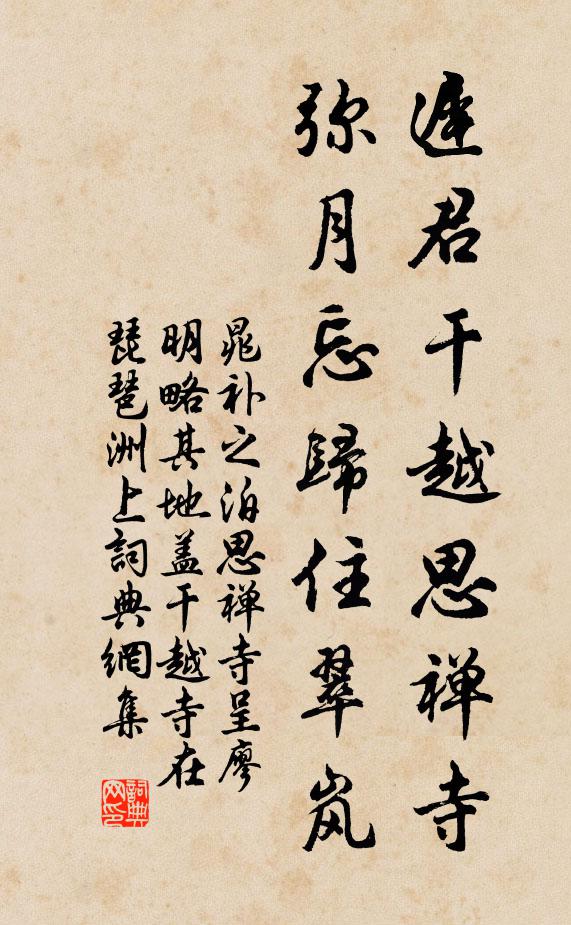 遲君干越思禅寺
弥月忘歸住翠岚
晁补之泊思禅寺呈廖
明略其地盖干越寺在
琵琶洲上詞典網集
詞典网印